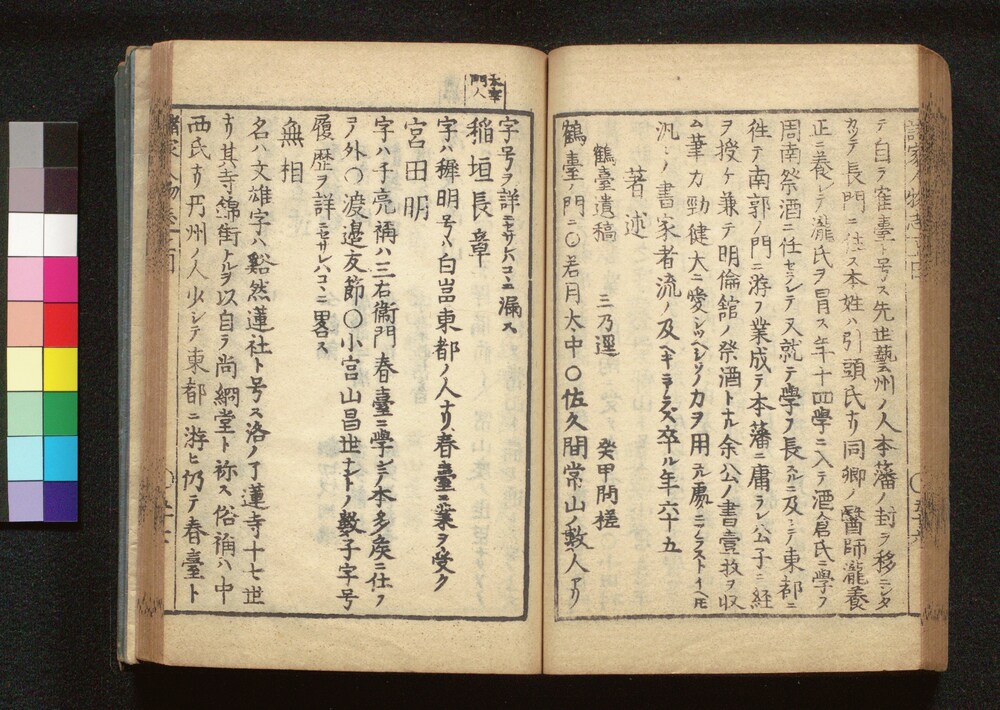 テ自ラ窪臺ト号ス先世藝州ノ人本藩ノ封ヲ移ニシタ
カッテ長門ニ住ス本姓ハ引頭氏ナリ同郷ノ醫師瀧養
正ニ養レテ瀧氏ヲ冒ス年十四學ニ入テ酒倉氏ニ學フ
周南祭酒ニ任セラレテ又就テ學フ長スルニ及ンテ東都ニ
徃テ南郭ノ門ニ游フ業成テ本藩ニ庸ラレ公子ニ経
ヲ授ケ兼テ明倫舘ノ祭酒トナル余公ノ書壹枚ヲ収
ム筆力勁健大ニ愛シツヘシソノ力ヲ用ル處ニアラストイヘ𪜈
汎々ノ書家者流ノ及ヘキニアラズ卒ル年六十五
著述
鶴臺遺稿 三乃逕 癸甲問槎
鶴臺ノ門ニ〇若月大中〇佐久間常山ノ數人アリ
字号ヲ詳ニセサレハコヽニ漏ス
太宰門人
稲垣長章
字ハ穉明号ハ白嵓東都ノ人ナリ春臺ニ業ヲ受ク
宮田明
字ハ子亮稱ハ三右衞門春臺ニ學ンデ本多矦ニ仕フ
ヲ外〇渡邉友節〇小宮山昌世ナトノ數子字号
履歴ヲ詳ニセサレハコヽニ畧ス
無相
名ハ文雄字ハ谿然蓮社ト号ス洛ノ了蓮寺十七世
ナリ其寺錦街トナルヲ以自ラ尚綗堂ト称ス俗稱ハ中
西氏ナリ丹州ノ人少シテ東都ニ游ヒ仍テ春臺ト